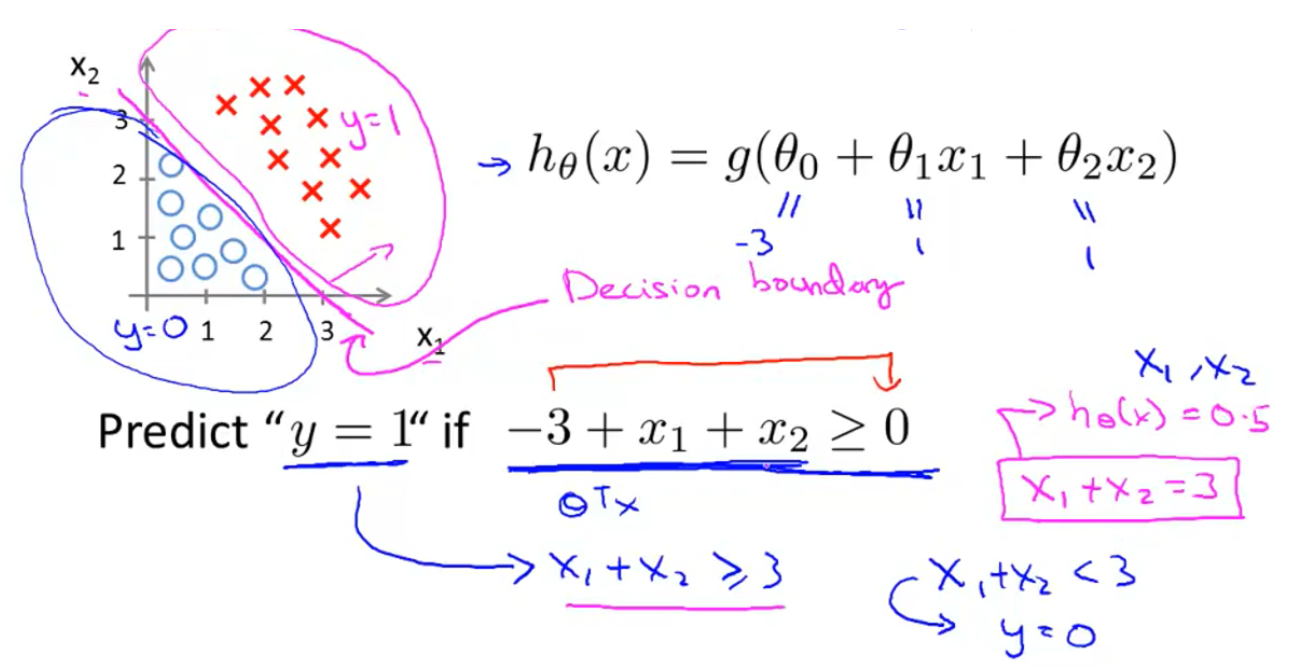 x₂
3
2
1
y=1
y=0 1 2 3 x₁
→ hθ(x) = g(θ₀ + θ₁x₁ + θ₂x₂)
|| || ||
-3 1 1
Decision boundary
Predict “y = 1“ if −3 + x₁ + x₂ ≥ 0
θᵀx
→ x₁ + x₂ ≥ 3
x₁, x₂
→ hθ(x) = 0.5
x₁ + x₂ = 3
x₁ + x₂ < 3
→ y = 0